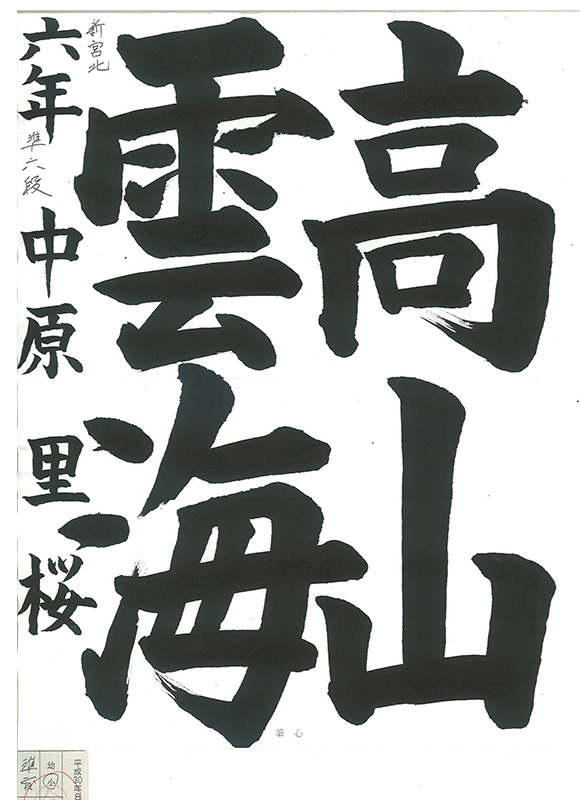 高山
雲海
新宮北
六年 準六段 中原 里桜
心筆
平成30年8
幼 小